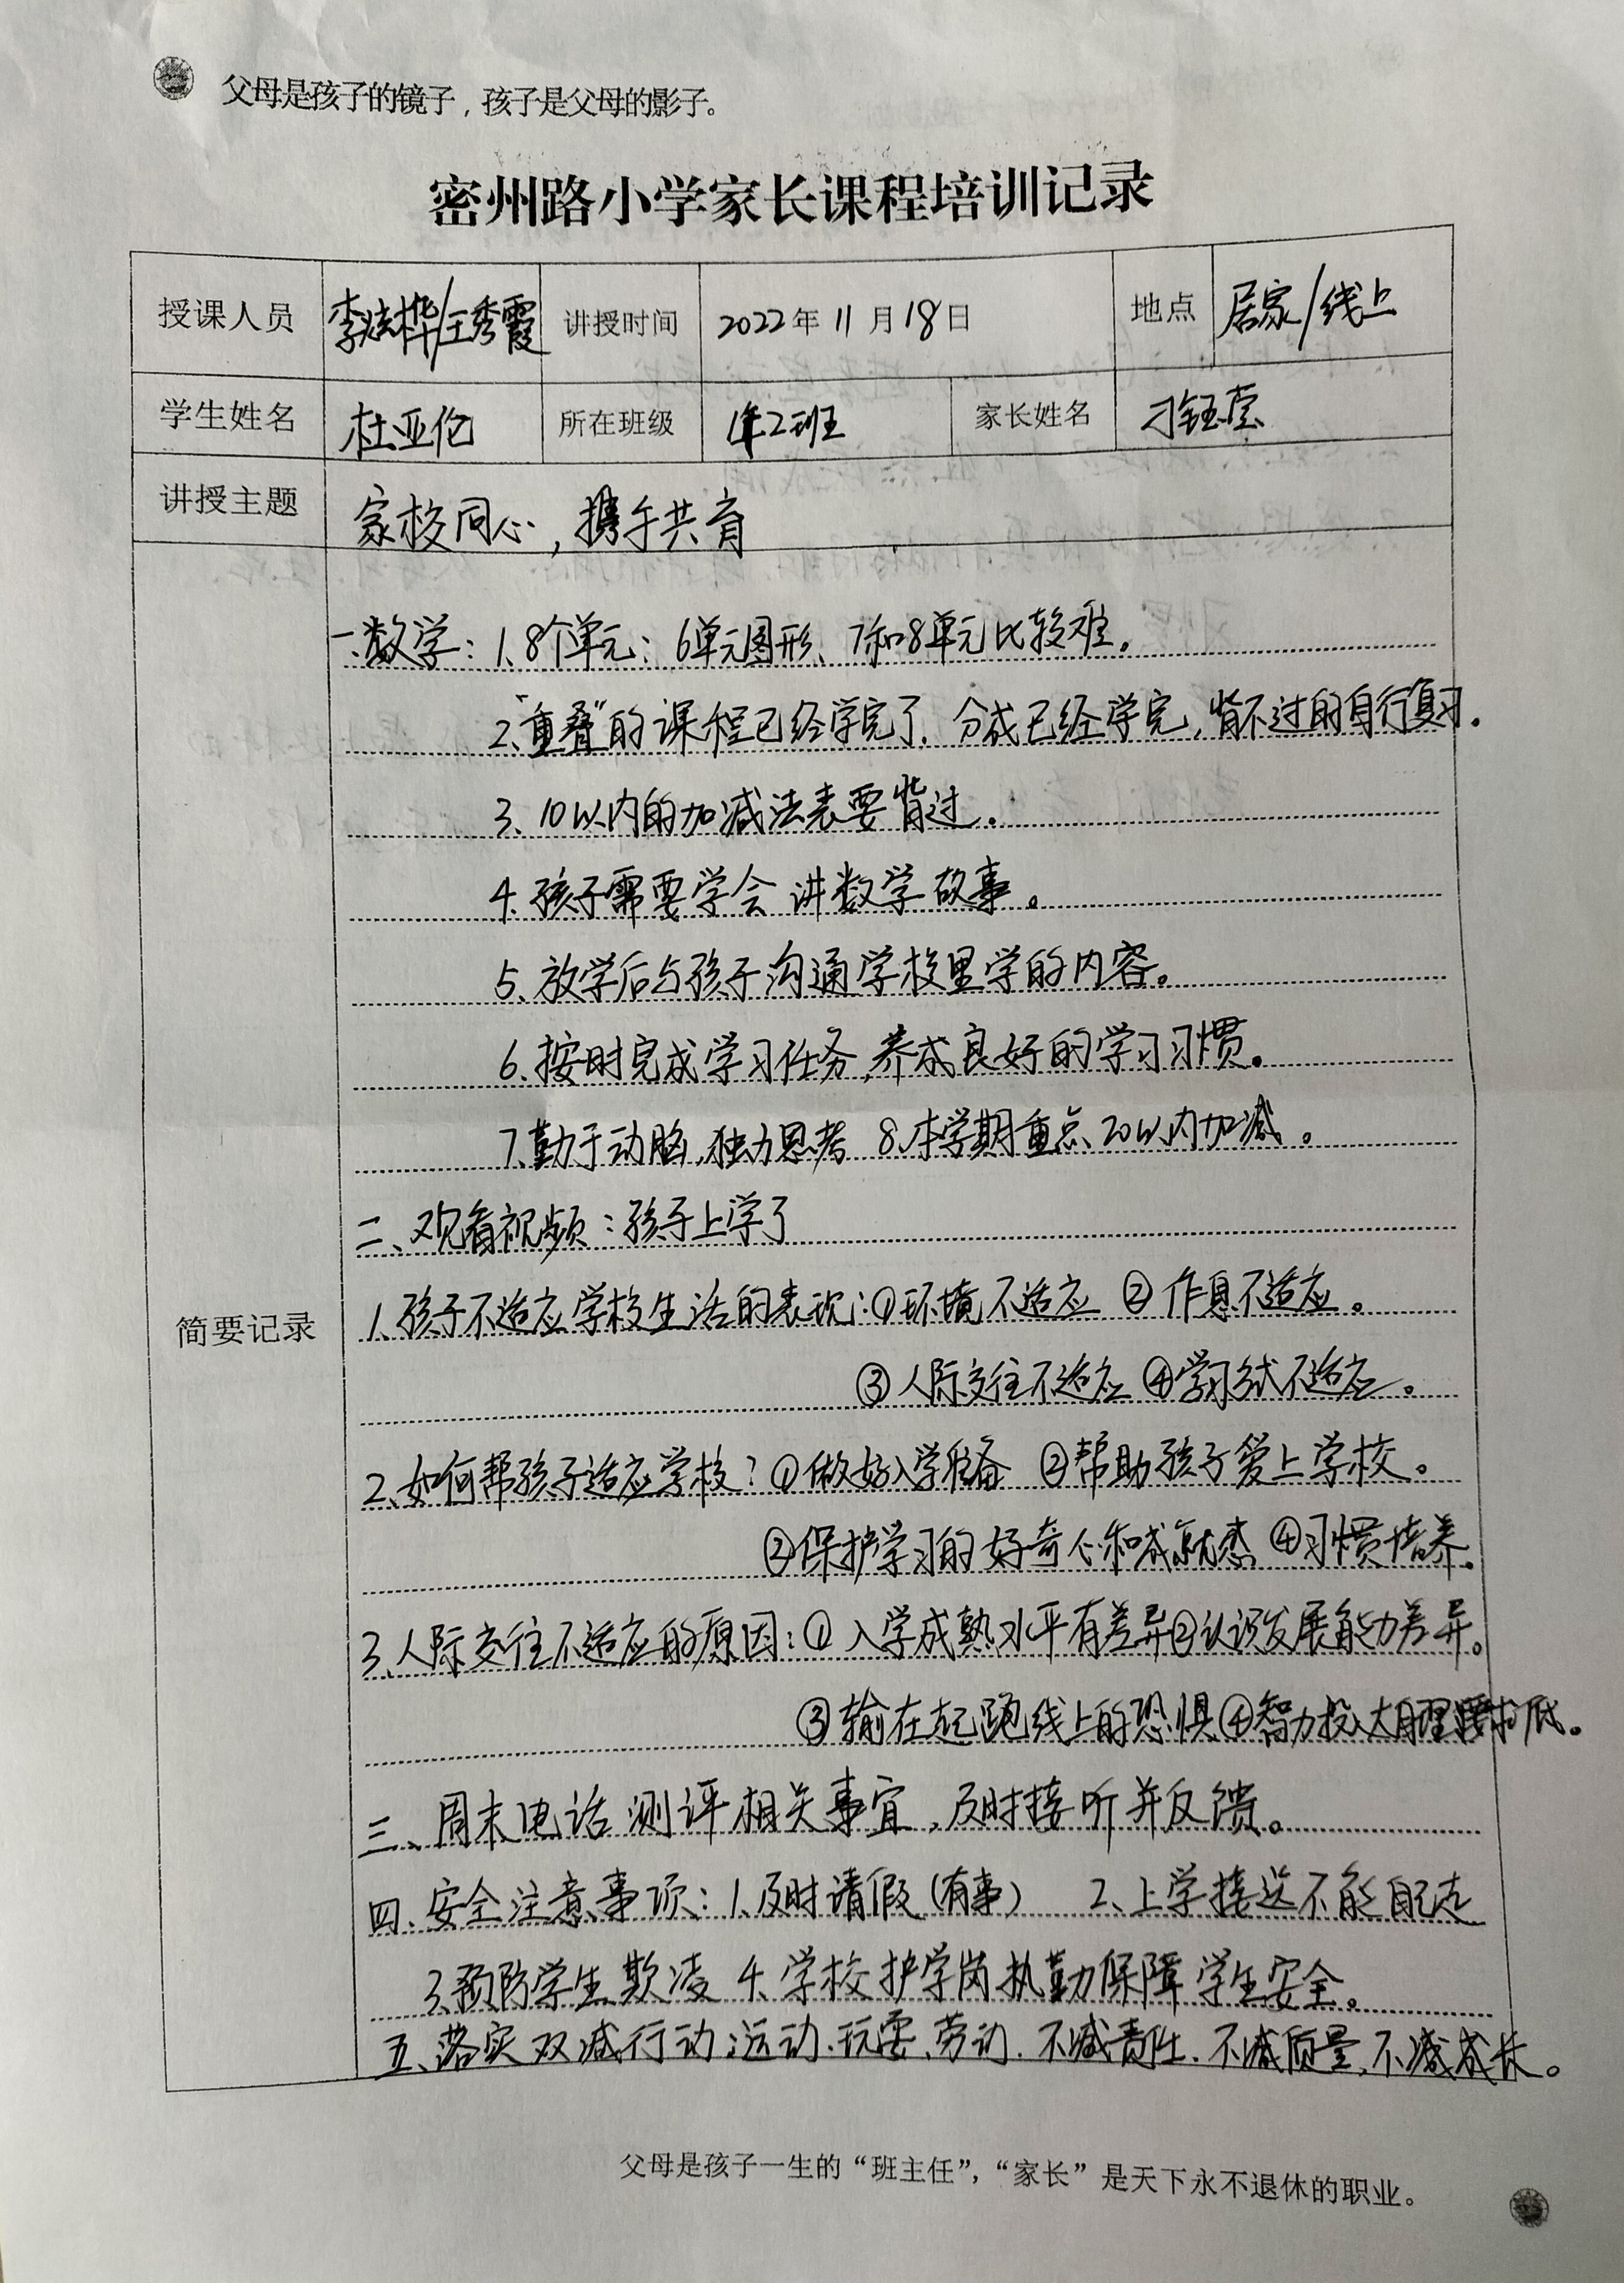 父母是孩子的镜子，孩子是父母的影子。
密州路小学家长课程培训记录
授课人员 李 桦/王秀霞 讲授时间 2022年11月18日 地点 居家/线上
学生姓名 杜亚伦 所在班级 1年2班 家长姓名 刁钰莹
讲授主题 家校同心，携手共育
简要记录
一.数学：1、8个单元；6单元图形、7和8单元比较难。
2、“重叠”的课程已经学完了．分成已经学完，背不过的自行复习．
3、10以内的加减法表要背过．
4、孩子需要学会讲数学故事。
5、放学后与孩子沟通学校里学的内容。
6、按时完成学习任务，养成良好的学习习惯。
7、勤于动脑，独力思考 8、本学期重点20以内加减。
二、观看视频：孩子上学了
1、孩子不适应学校生活的表现：①环境不适应 ②作息不适应。
③人际交往不适应 ④学习方式不适应。
2、如何帮孩子适应学校？①做好入学准备 ②帮助孩子爱上学校。
②保护学习的好奇心和成就感 ④习惯培养。
3、人际交往不适应的原因：①入学成熟水平有差异②认识发展能力差异。
③输在起跑线上的恐惧④智力投入大 低。
三、周末电话测评相关事宜，及时接听并反馈。
四、安全注意事项：1、及时请假（有事） 2、上学接送不能自己走
3、预防学生欺凌 4、学校护学岗执勤保障学生安全。
五、落实双减行动，运动、玩耍、劳动．不减责任．不减质量，不减成长。
父母是孩子一生的“班主任”，“家长”是天下永不退休的职业。